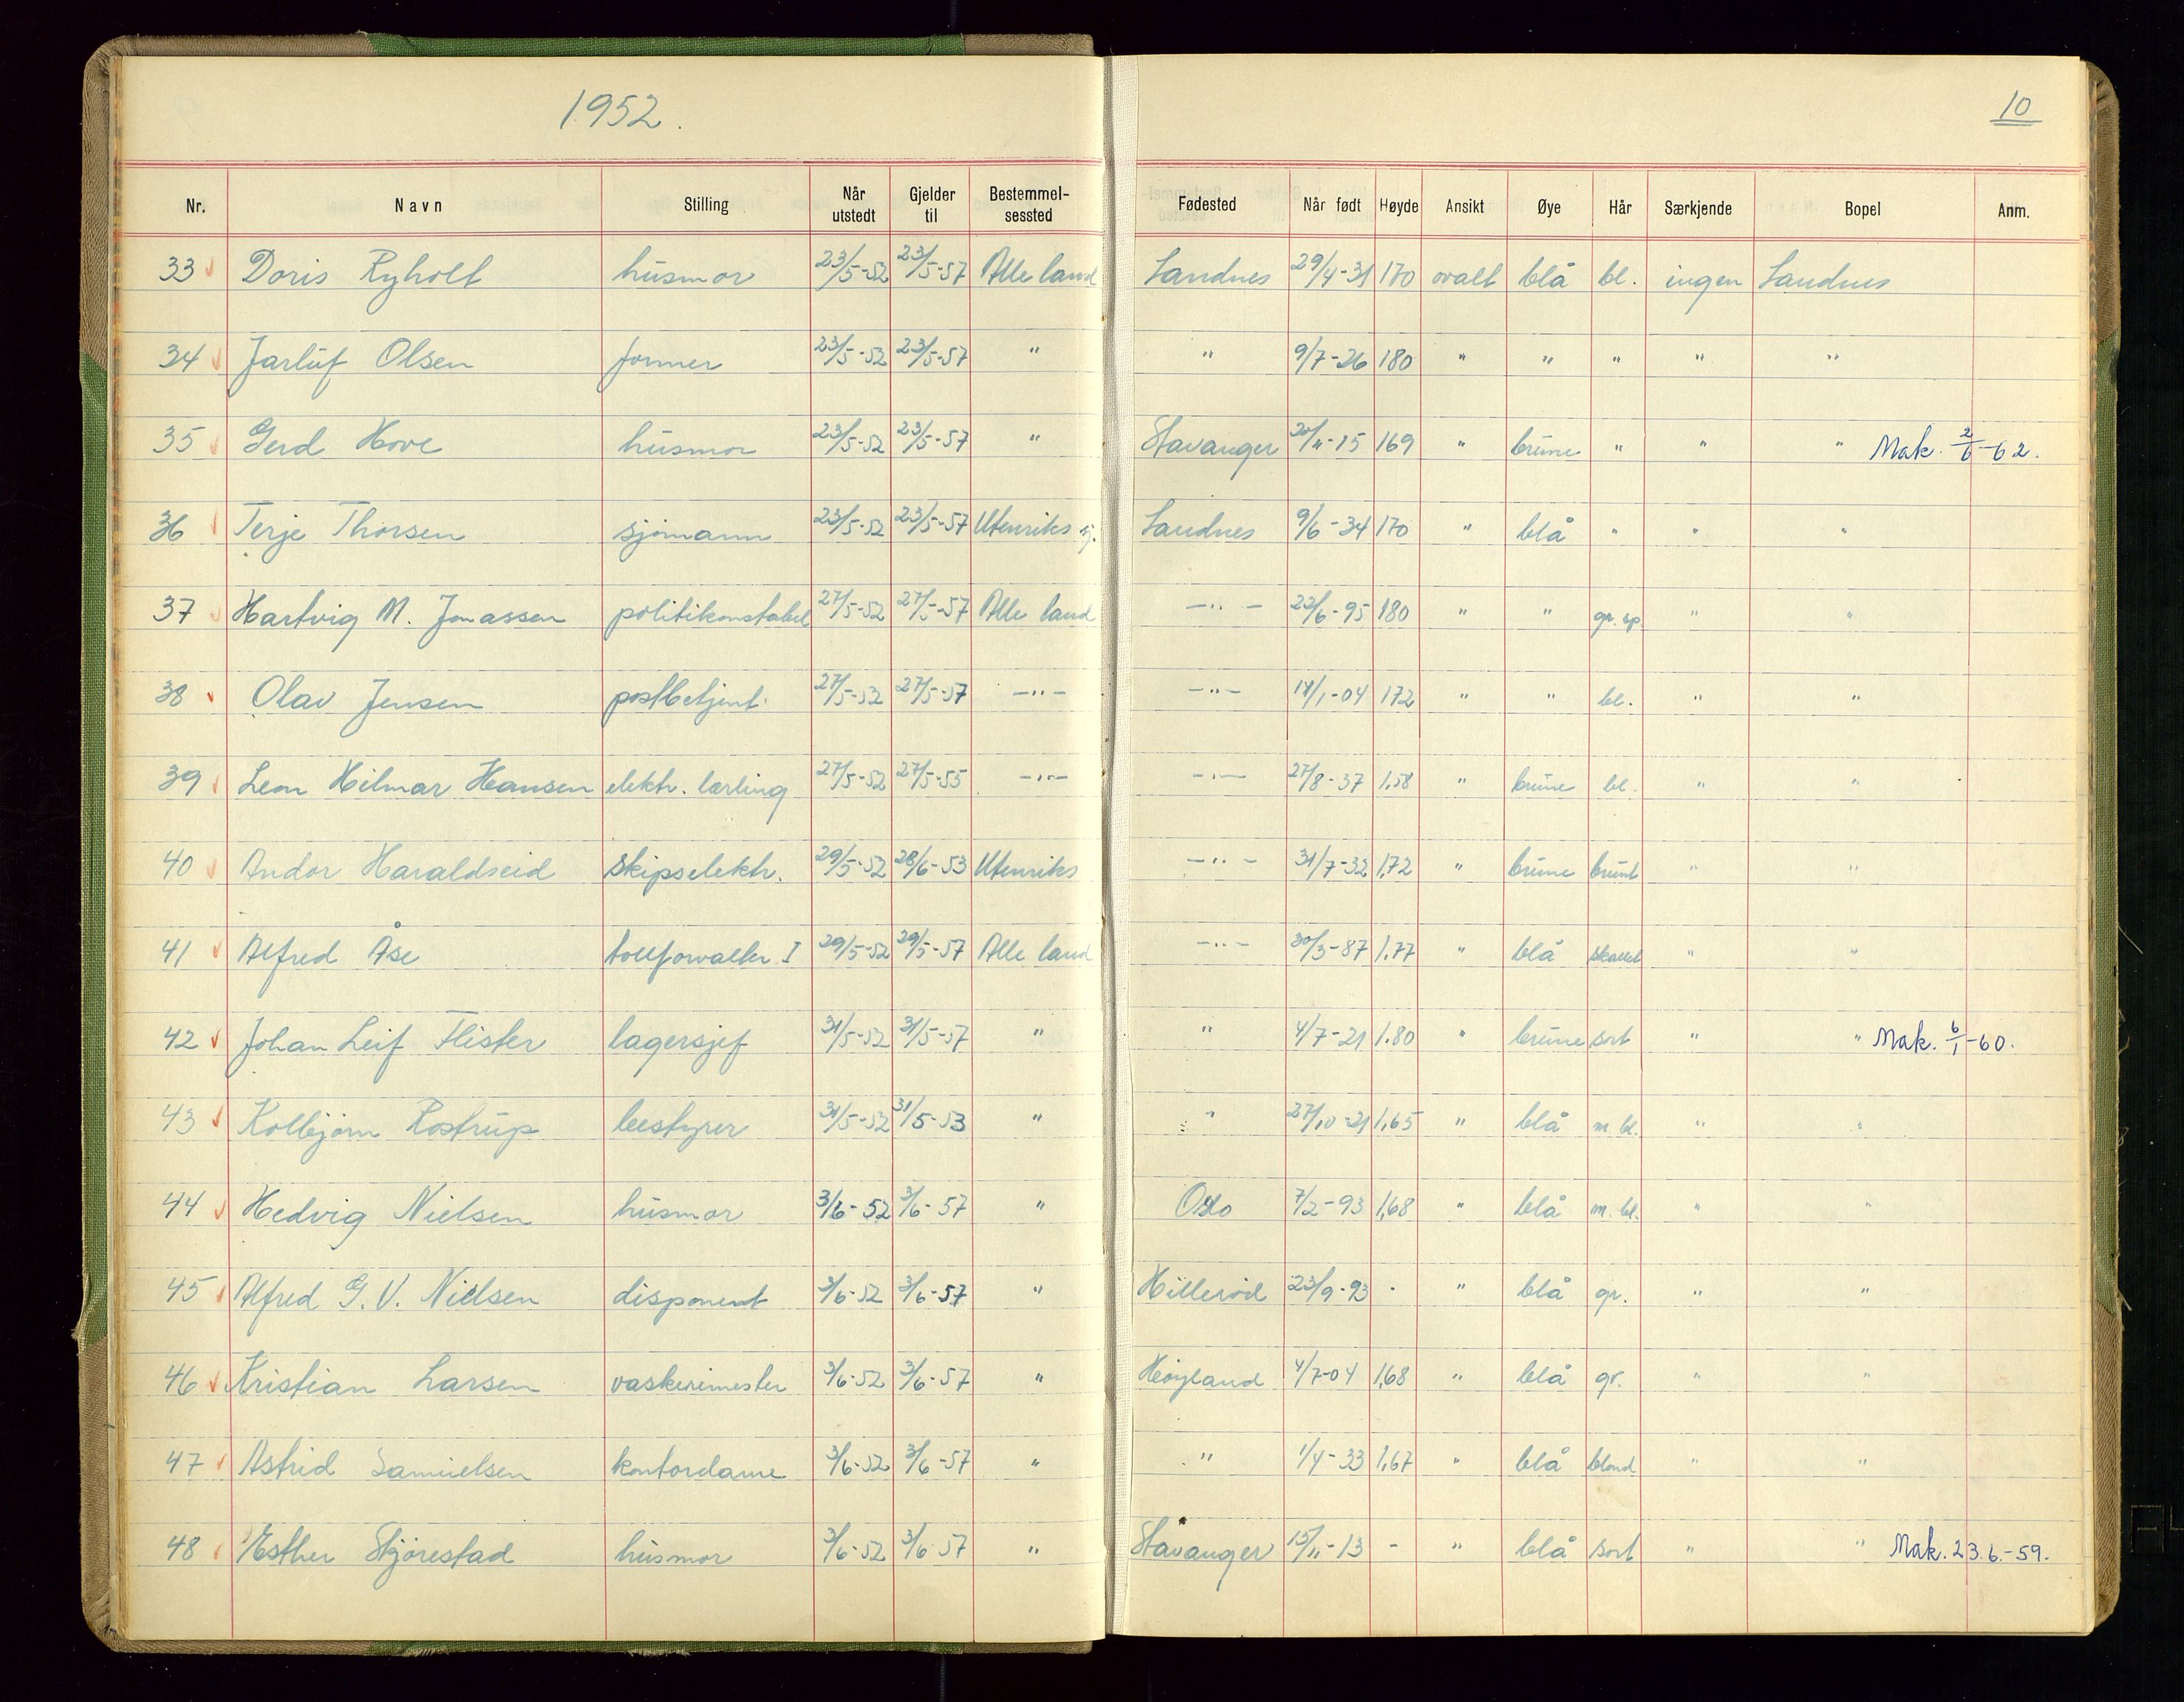 1952.
10
Nr. Navn Stilling Når utstedt Gjelder til Bestemmelsessted Fødested Når født Høyde Ansikt Øye Hår Særkjende Bopel Anm.
33 Doris Ryholt husmor 23/5-52 23/5-57 Alle land Sandnes 29/4-31 170 ovalt blå bl. ingen Sandnes
34 Jarluf Olsen former 23/5-52 23/5-57 " " 9/7-26 180 " " " " "
35 Gerd Hove husmor 23/5-52 23/5-57 " Stavanger 20/11-15 169 " brune " " " Mak. 2/6-62.
36 Terje Thorsen sjømann 23/5-52 23/5-57 Utenriks sj. Sandnes 9/6-34 170 " blå " " "
37 Hartvig M. Jonassen politikonstabel 27/5-52 27/5-57 Alle land -"- 22/6-95 180 " " gr. sp. " "
38 Olav Jensen postbetjent. 27/5-52 27/5-57 -"- -"- 14/1-04 172 " " bl. " "
39 Leon Hilmar Hansen elektr. lærling 27/5-52 27/5-55 -"- -"- 27/8-37 1,58 " brune bl. " "
40 Andor Haraldseid skipselektr. 29/5-52 28/6-53 Utenriks -"- 31/7-32 1,72 " brune brunt " "
41 Alfred Åse tollforvalter I 29/5-52 29/5-57 Alle land -"- 30/3-87 1.77 " blå skallet " "
42 Johan Leif Flister lagersjef 31/5-52 31/5-57 " " 4/7-21 1.80 " brune sort " " Mak. 6/1-60.
43 Kolbjørn Rostrup bestyrer 31/5-52 31/5-53 " " 27/10-21 1,65 " blå m. bl. " "
44 Hedvig Nielsen husmor 3/6-52 3/6-57 " Oslo 7/2-93 1,68 " blå m. bl. " "
45 Alfred G. V. Nielsen disponent 3/6-52 3/6-57 " Hillerød 23/9-93 - " blå gr. " "
46 Kristian Larsen vaskerimester 3/6-52 3/6-57 " Høyland 4/7-04 1,68 " blå gr. " "
47 Astrid Samuelsen kontordame 3/6-52 3/6-57 " " 1/4-33 1,67 " blå blond " "
48 Esther Stjørestad husmor 3/6-52 3/6 57 " Stavanger 15/11-13 - " blå sort " " Mak. 23.6.-59.